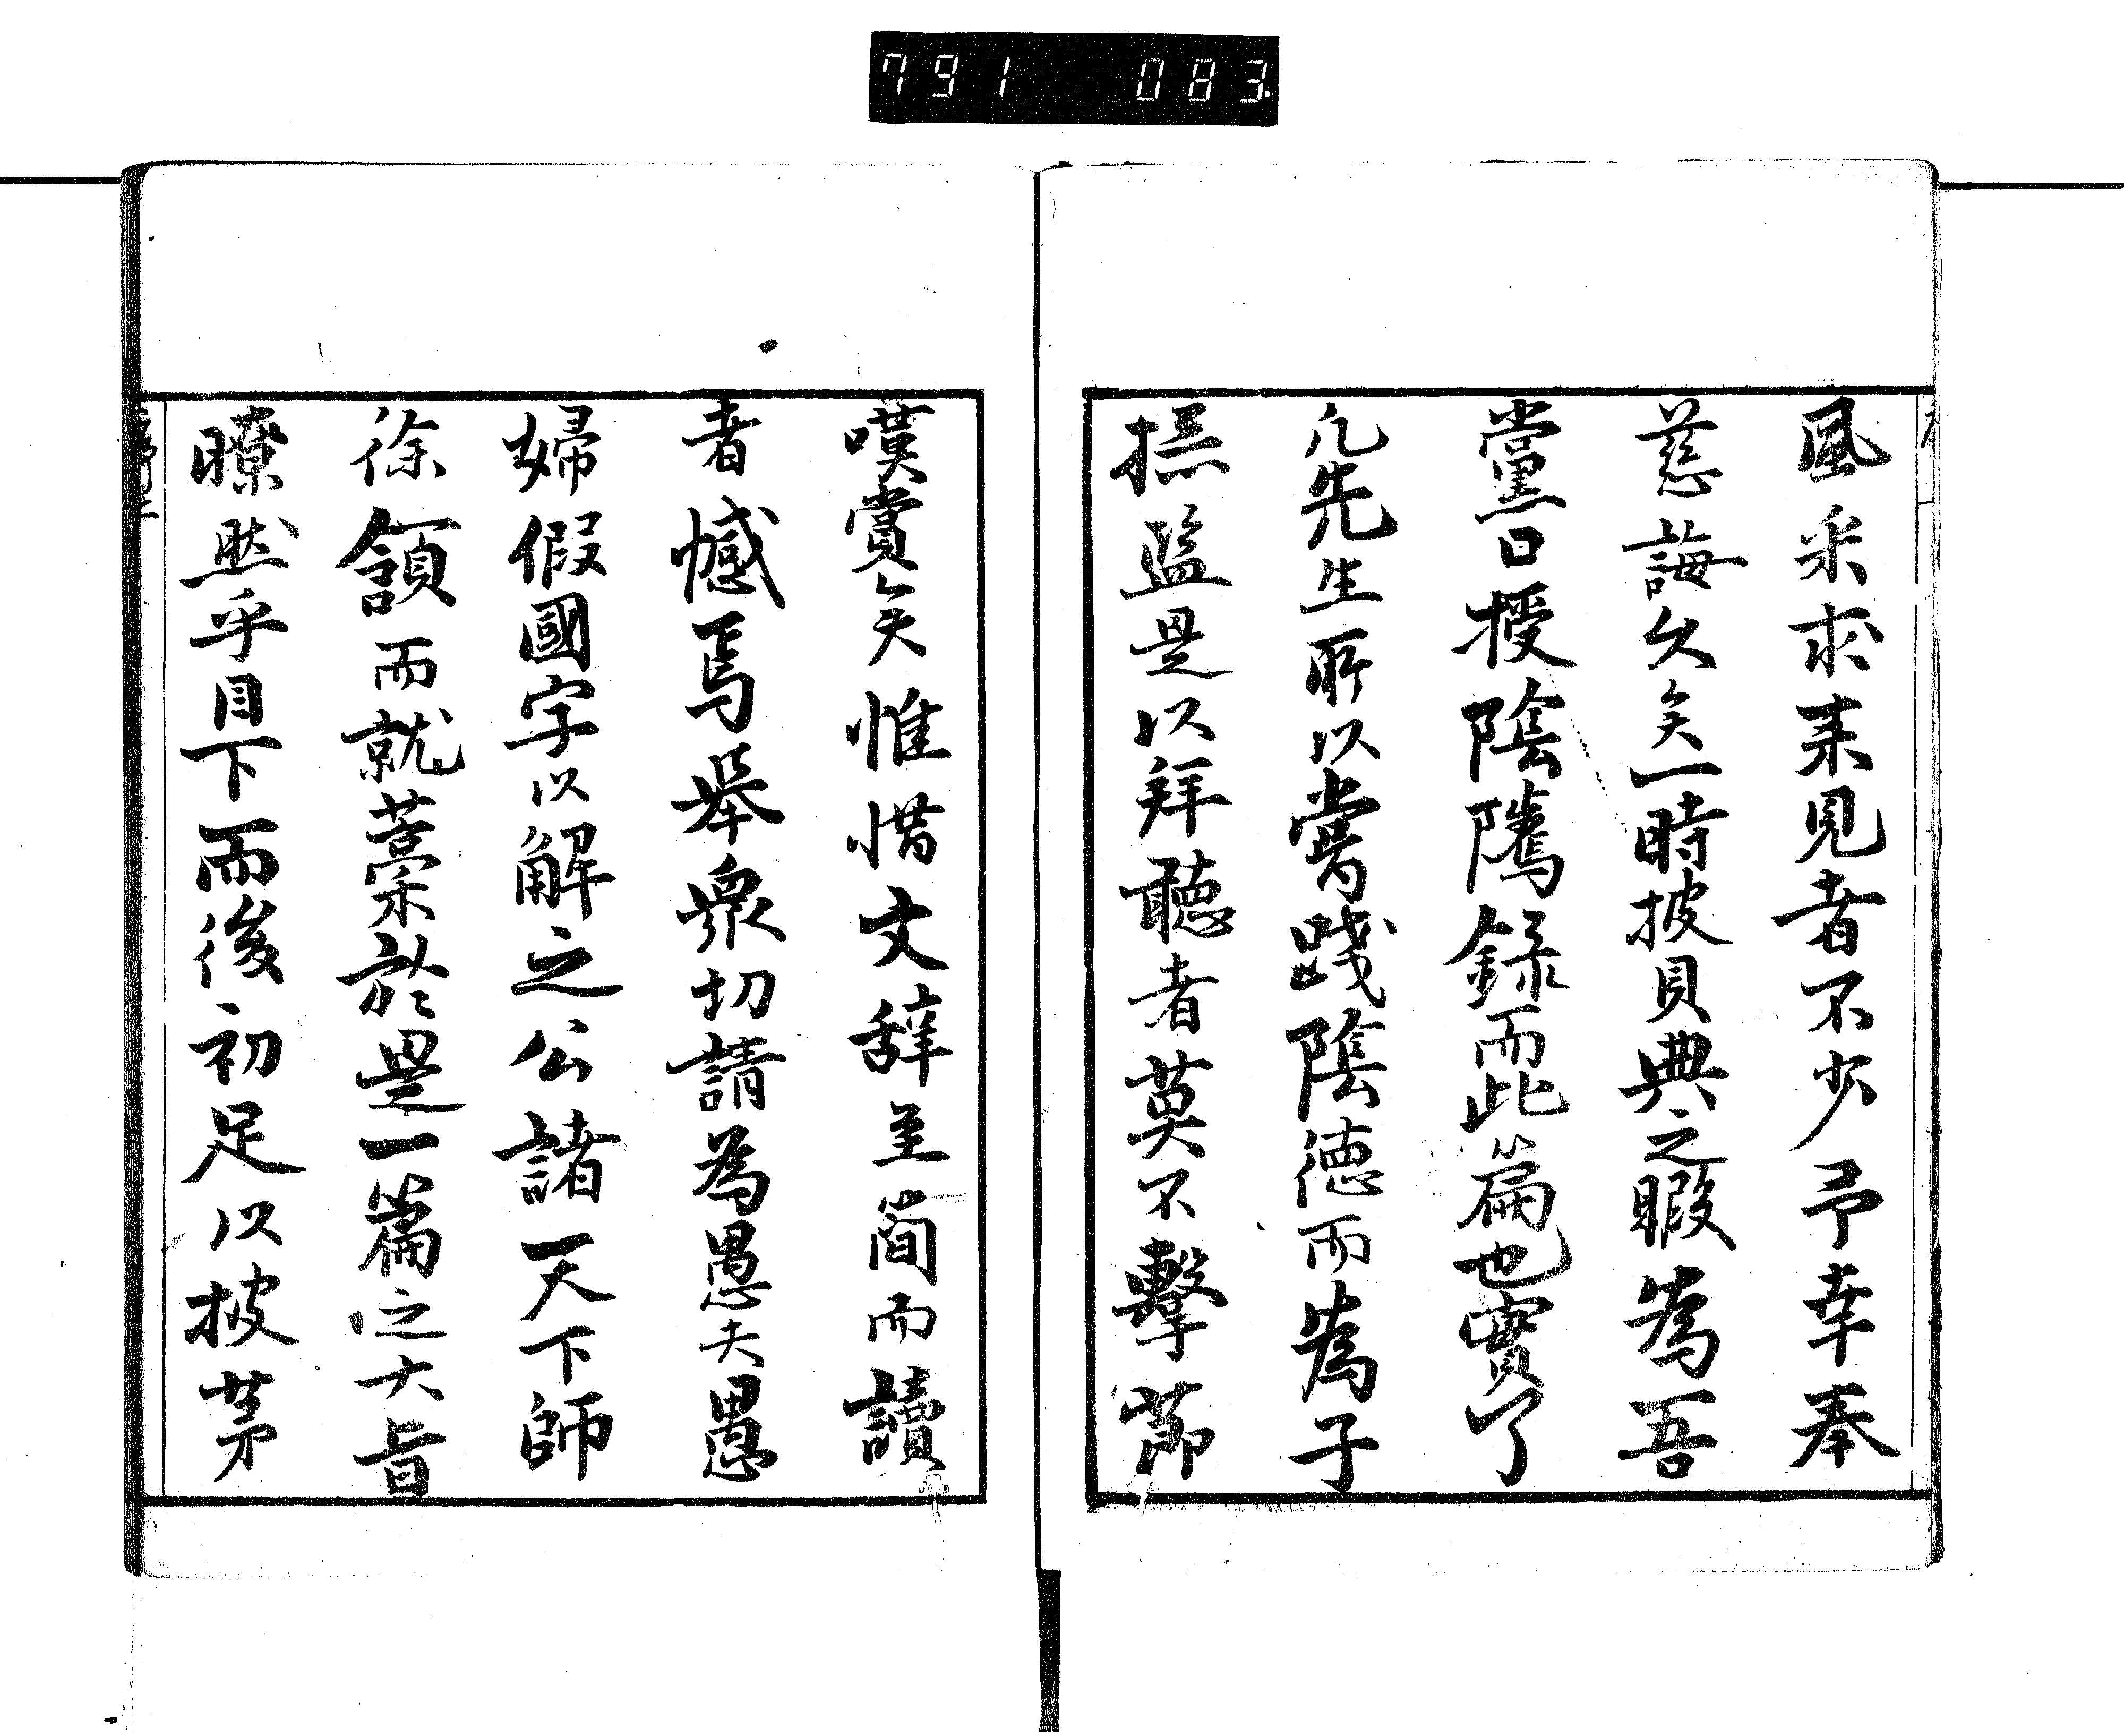 791 083
風采求来見者不少予幸奉
慈誨久矣一時披貝典之暇為吾
黨曰授陰隲錄而此篇也實了
凢先生所以嘗踐陰德而為子
孫監是以拜聽者莫不擊節
嘆賞矣惟惜文辞至簡而讀
者憾焉舉衆切請為愚夫愚
婦假國字以解之公諸天下師
徐頷而就藁於是一篇之大旨
瞭然乎目下而後初足以披茅